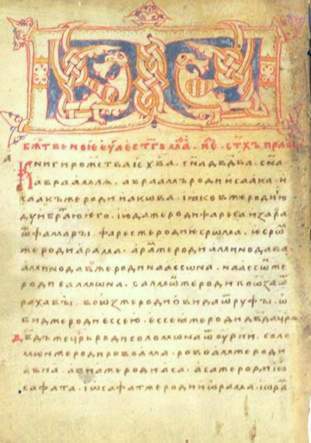 Книгиродства іс҃ х҃ва. с҃на дв҃два. с҃на
авраамлѧ. авраамъ роди ісаака. и
саакъ же роди иакова. іаков же роди ию
ду и братию его. іюда же роди фареса и зара
ѿ фамары. фарес же роди есрѡма. и есрѡ
же роди арама. арам же роди аминодава
аминодав же роди наассона. наассѡ же
роди салмѡна. салмѡ же роди воѡза ѿ
рахавы. воѡз же роди ѡвида ѿ руфы. ѡ
вид же роди ессею. ессеи же роди дв҃да цр҃ѧ
дв҃дъ же цр҃ь роди соломѡна ѿ оурии. соло
мѡн же роди ровоама. ровоам же роди
авиа. авиа же роди аса. аса же роди іѡ
сафата. іѡсафат же роди іѡрама. іѡра